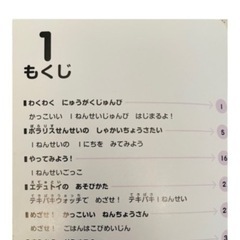 1
もくじ
わくわく にゅうがくじゅんび 1
かっこいい 1ねんせいじゅんび はじまるよ!
ポラリスせんせいの しゃかいちょうさたい 5
1ねんせいの 1にちを みてみよう
やってみよう! 16
1ねんせいごっこ
エデュトイの あそびかた 2
テキパキウォッチで めざせ! テキパキ1ねんせい
めざせ! かっこいい ねんちょうさん 2
めざせ! ごはんはこびめいじん
3